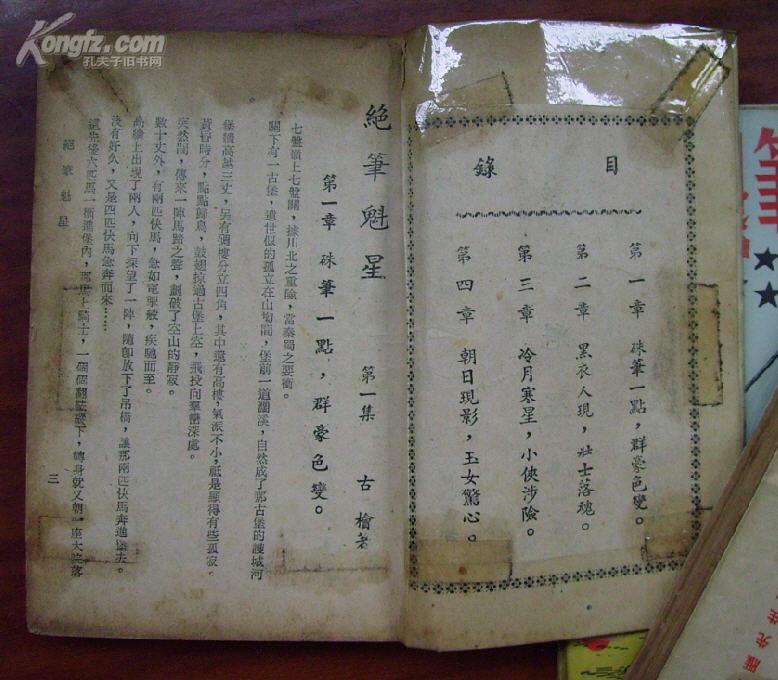 Kongfz.com
孔夫子旧书网
目錄
第一章 硃筆一點，群豪色變。
第二章 黑衣人現，壯士落魂。
第三章 冷月寒星，小俠涉險。
第四章 朝日現影，玉女驚心。
絕筆魁星 第一集 古檜著
第一章 硃筆一點，群豪色變。
七盤嶺上七盤關，據川北之重險，當秦蜀之要衝。
關下有一古堡，遺世似的孤立在山坳間，堡前一道濶溪，自然成了那古堡的護城河
堡牆高越三丈，另有碉樓分立四角，其中還有高樓，氣派不小，祗是顯得有些孤寂。
黃昏時分，點點歸鳥，鼓翅掠過古堡上空，飛投向羣巒深處。
突然間，傳來一陣馬蹄之聲，劃破了空山的靜寂。
數十丈外，有兩匹快馬，急如電掣般，疾馳而至。
高牆上出現了兩人，向下探望了一陣，隨卽放下了吊橋，讓那兩匹快馬奔進堡去。
沒有好久，又是四匹快馬急奔而來……
這先後六匹馬一衝進堡內，那馬上騎士，一個個翻鞍躍下，轉身就又朝一座大院落
絕筆魁星
三